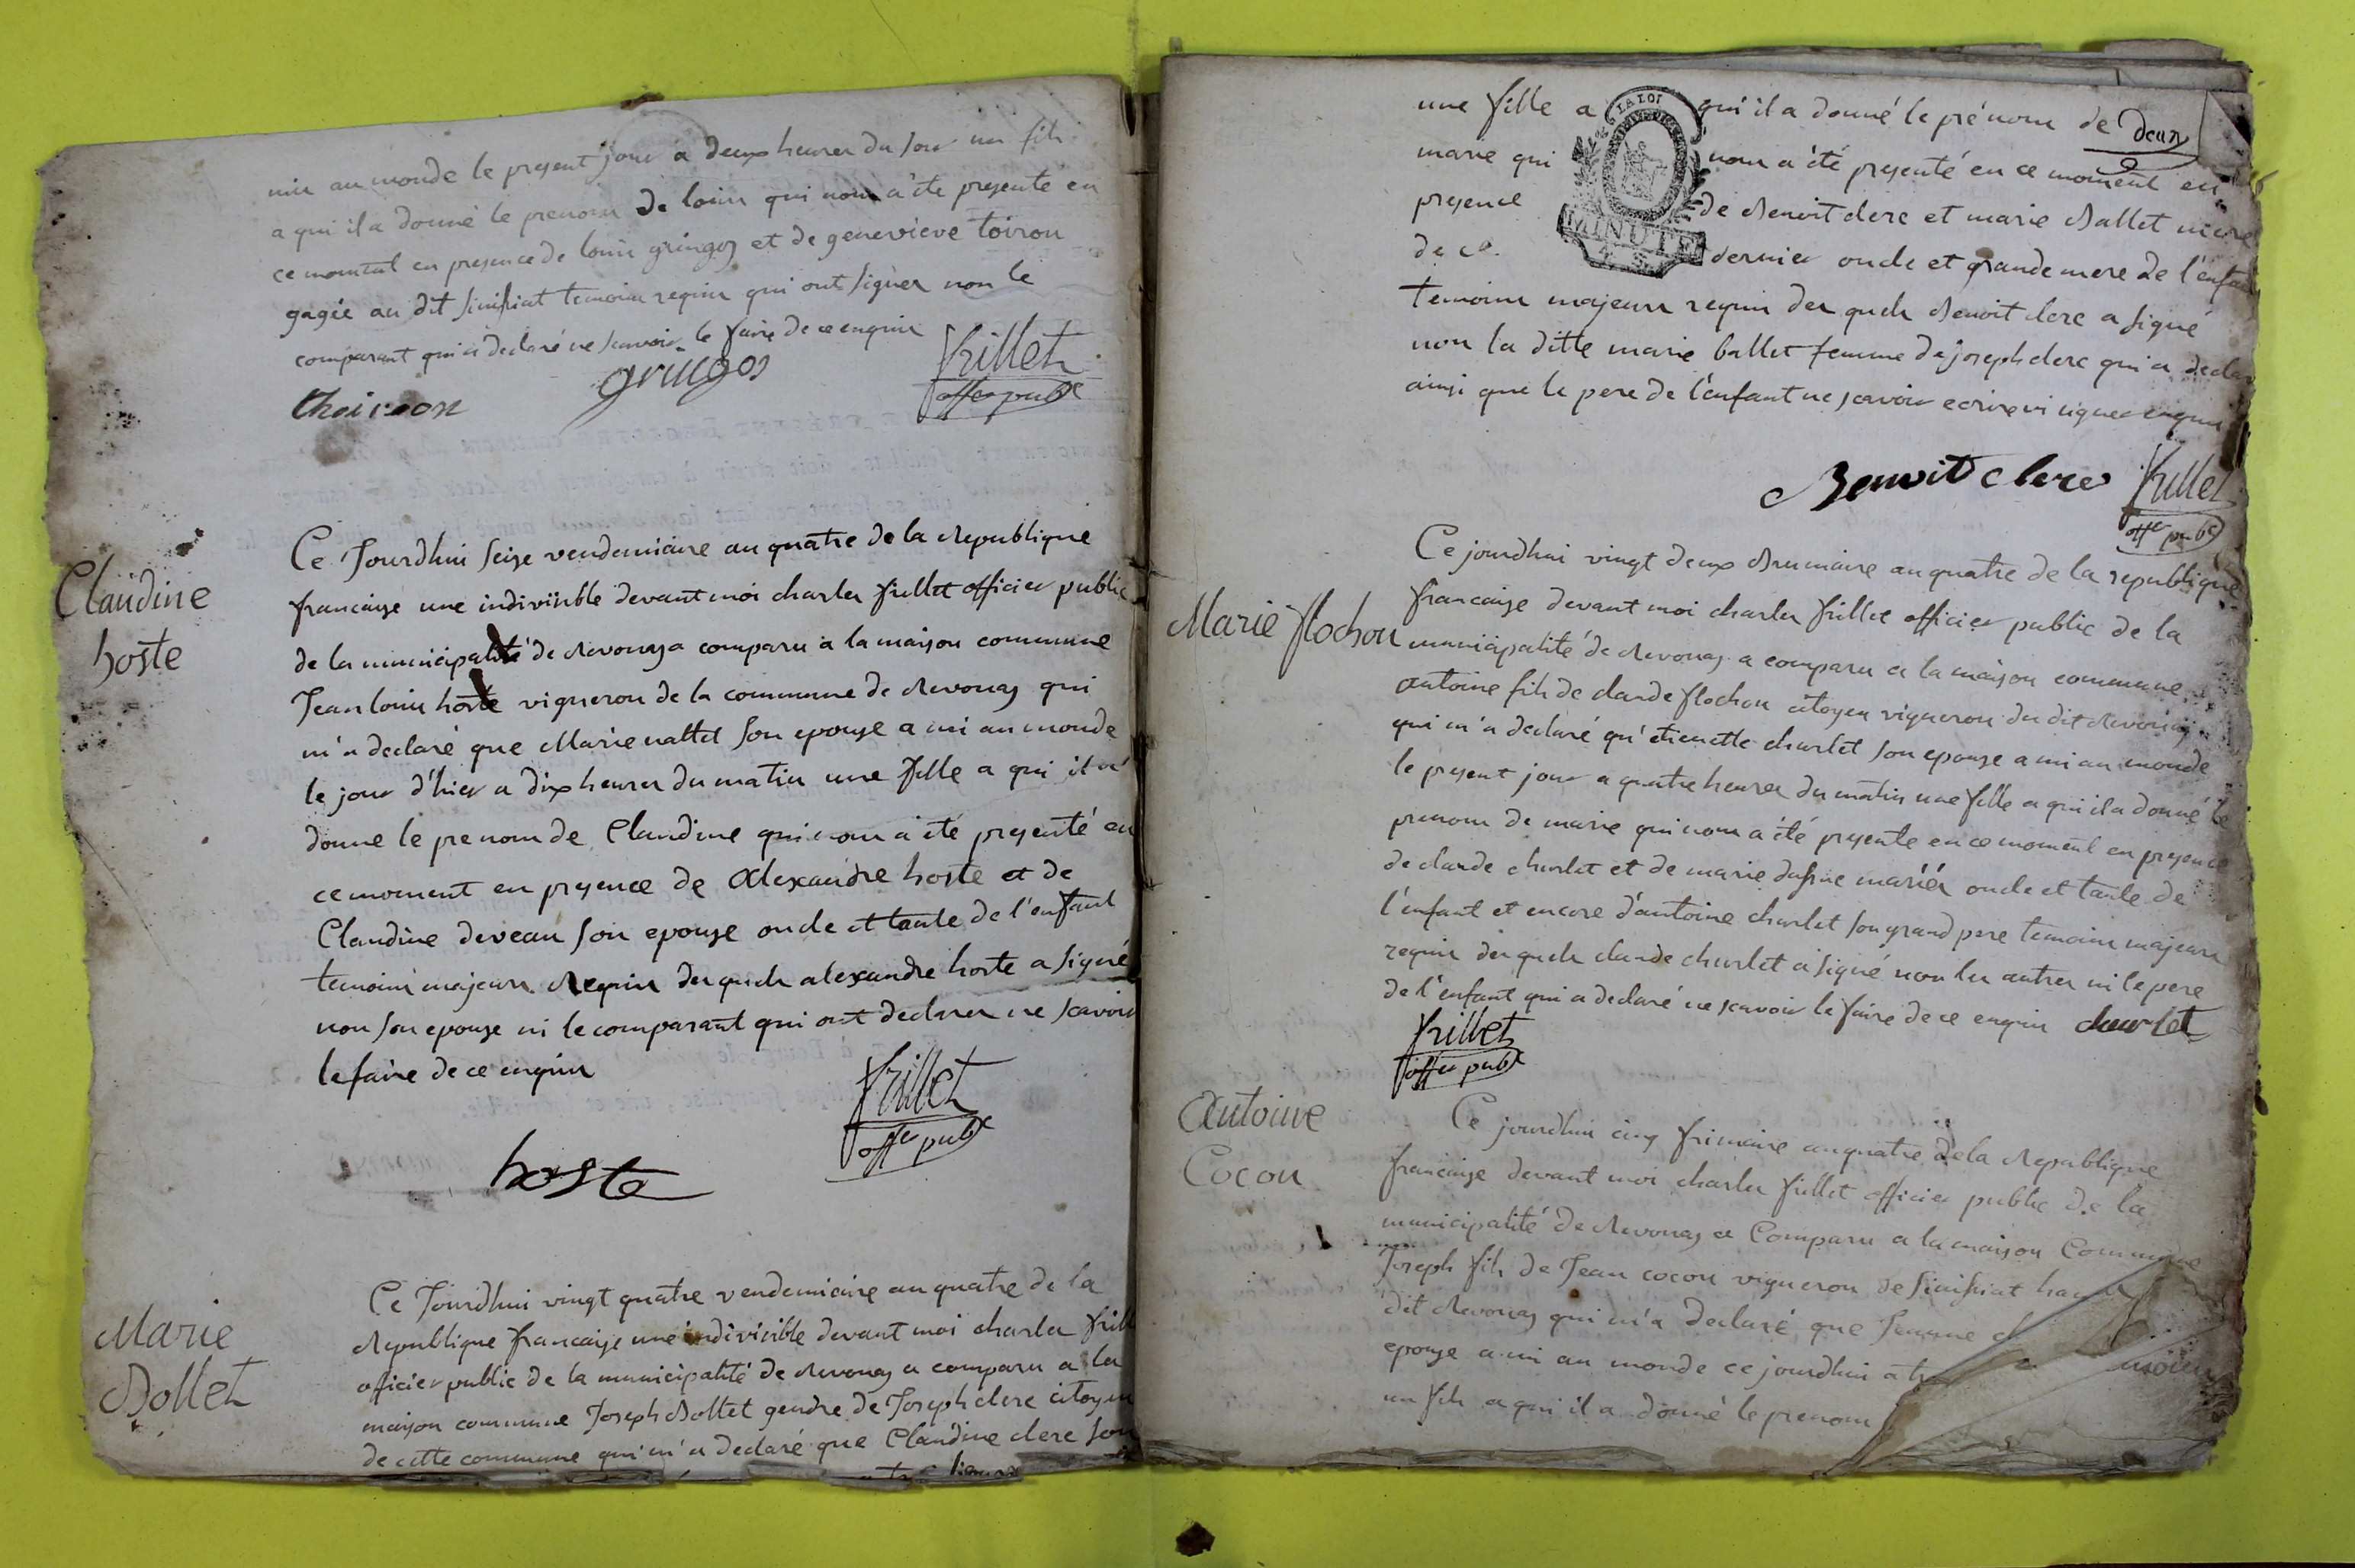 mis au monde le present jour a deux heures du soir un fils
a qui il a donné le prenom de louis qui nous a été presenté en
ce moment en presence de louis gringoz et de geneviève toiron
gagée au dit temoins requis qui ont signer non le
comparant qui a declaré ne scavoir le faire de ce enquis
gringos
frillet
offer public
Claudine
hoste
Ce Jourdhui seize vendemiaire an quatre de la Republique
francaise une indivisible devant moi charles frillet officier public
de la municipalité de Revonas a comparu a la maison commune
Jean louis hoste vigneron de la commune de Revonas qui
m'a declaré que Marie nallet son epouse a mi au monde
le jour d'hier a dix heures du matin une fille a qui il a
donne le prenom de Claudine qui nous a été presenté en
ce moment en presence de Alexandre hoste et de
Claudine deveau son epouse oncle et tante de l'enfant
temoins majeurs Requis des quels alexandre hoste a signé
non son epouse ni le comparant qui ont declarer ne scavoir
le faire de ce enquis
frillet
offer public
hoste
Marie
Bollet
Ce Jourdhui vingt quatre vendemiaire an quatre de la
Republique francaise une indivicible devant moi charles frill
officier public de la municipalité de Revonas a comparu a la
maison commune Joseph Bollet gendre de Joseph clerc citoyen
de cette commune qui m'a declaré que Claudine clerc son
une fille a qui il a donné le prénom de
LA LOI
marie qui nous a été presenté en ce moment en
presence de Benoit clerc et marie Ballet mere
MINUTE
de ce dernier oncle et grande mere de l'enfant
temoins majeurs requis des quels Benoit clerc a signé
non la ditte marie ballet femme de joseph clerc qui a declar
ainsi que le pere de l'enfant ne scavoir ecrire ni signer enquis
Benoit clerc
frillet
offer public
Marie flochon
Ce jourdhui vingt deux Brumaire an quatre de la republique
francaise devant moi charles frillet officier public de la
municipalité de Revonas a comparu a la maison commune
antoine fils de claude flochon citoyen vigneron du dit Revonas
qui m'a declaré qu'etienette charlet son epouse a mi au monde
le present jour a quatre heures du matin une fille a qui il a donné le
prenom de marie qui nous a été presente en ce moment en presence
de claude churlet et de marie mariés oncle et tante de
l'enfant et encore d'antoine charlet son grand pere temoins majeurs
requis des quels claude churlet a signé non les autres ni le pere
de l'enfant qui a declaré ne scavoir le faire de ce enquis churlet
frillet
offer public
Antoine
Cocon
Ce jourdhui cinq frimaire an quatre de la Republique
francaise devant moi charles frillet officier public de la
municipalité de Revonas a Comparu a la maison Commune
Joseph fils de Jean cocon vigneron de
dit Revonas qui m'a declaré que Jeanne
epouse a mi au monde ce jourdhui a
un fils a qui il a donné le prenom